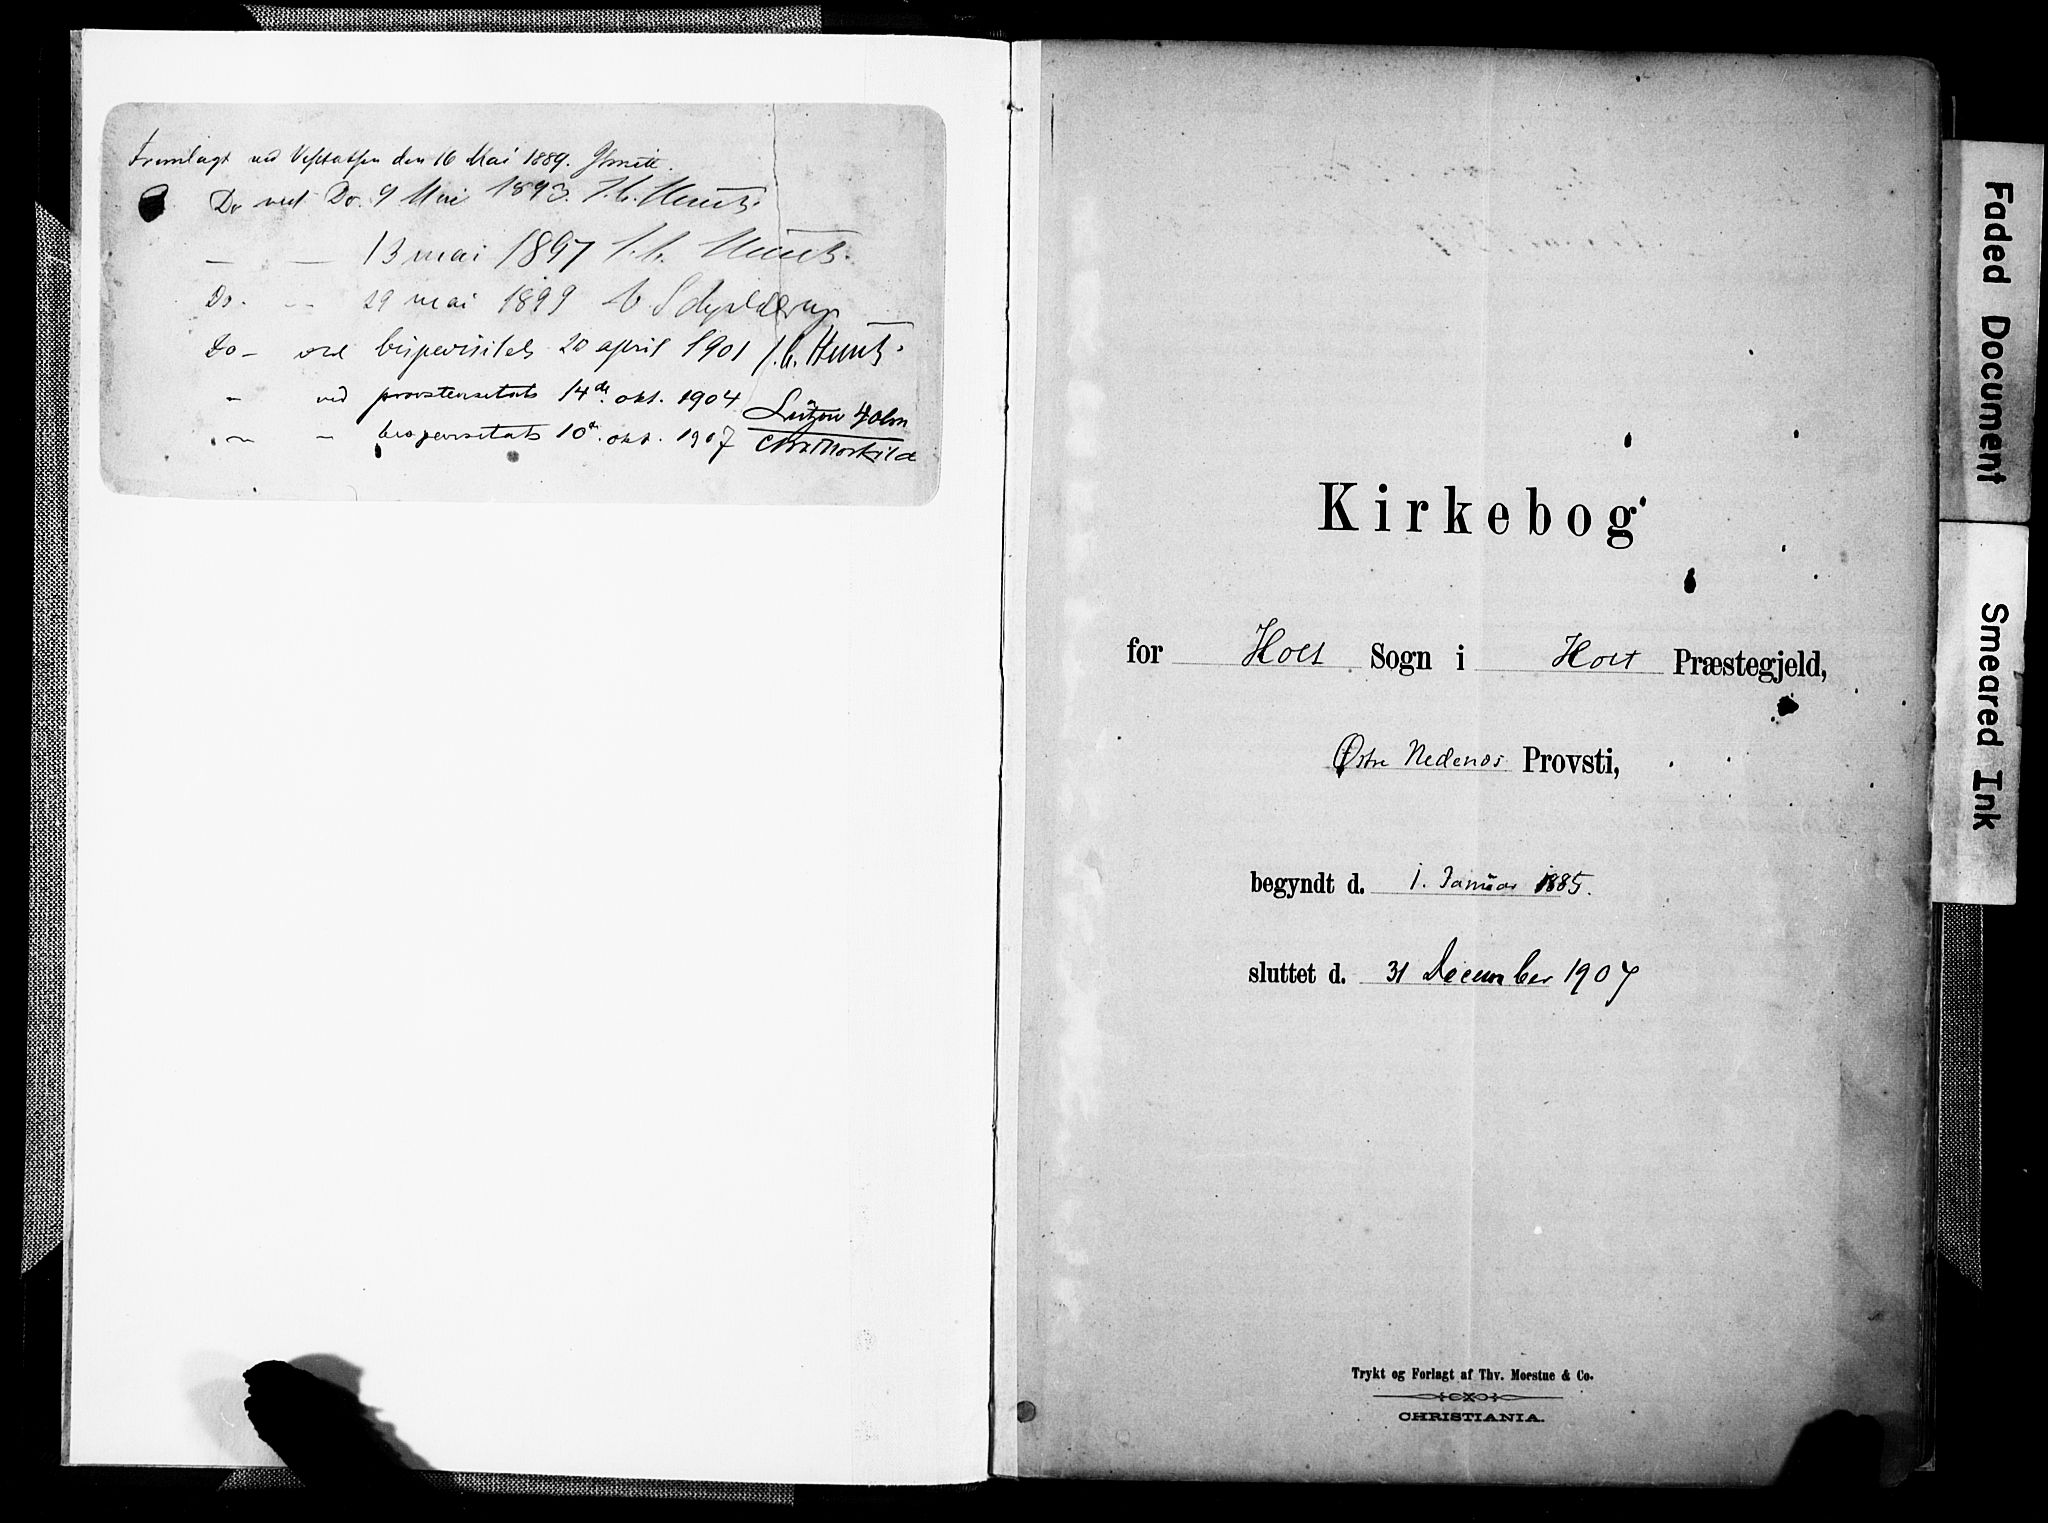 Fremlagt ved Visitatsen den 16 Mai 1889.
Do ved Do. 9 Mai 1893. J. C. Heuch.
— — 13 mai 1897 J. C. Heuch.
Do. — 29 mai 1899 Schjelderup
Do — ved bispevisitats 20 april 1901 J. C. Heuch.
— ved provstevisitats 14de okt. 1904 Lützow Holm
— — bispevisitats 10d. okt. 1907
Kirkebog
for Holt Sogn i Holt Præstegjeld,
Østre Nedenæs Provsti,
begyndt d. 1. Januar 1885.
sluttet d. 31 December 1907
Trykt og Forlagt af Thv. Moestue & Co.
CHRISTIANIA.
Faded Document
Smeared Ink